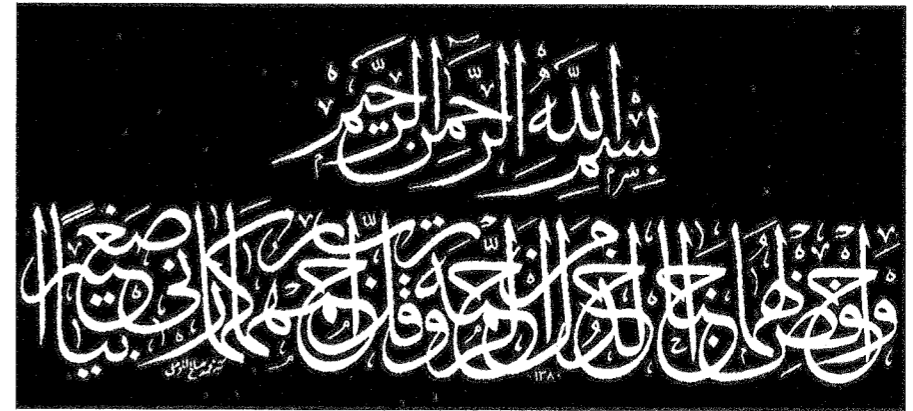 بِسْمِ اللَّهِ الرَّحْمٰنِ الرَّحِيمِ
وَاخْفِضْ لَهُمَا جَنَاحَ الذُّلِّ مِنَ الرَّحْمَةِ وَقُل رَّبِّ ارْحَمْهُمَا كَمَا رَبَّيَانِي صَغِيرًا
١٣٨٠